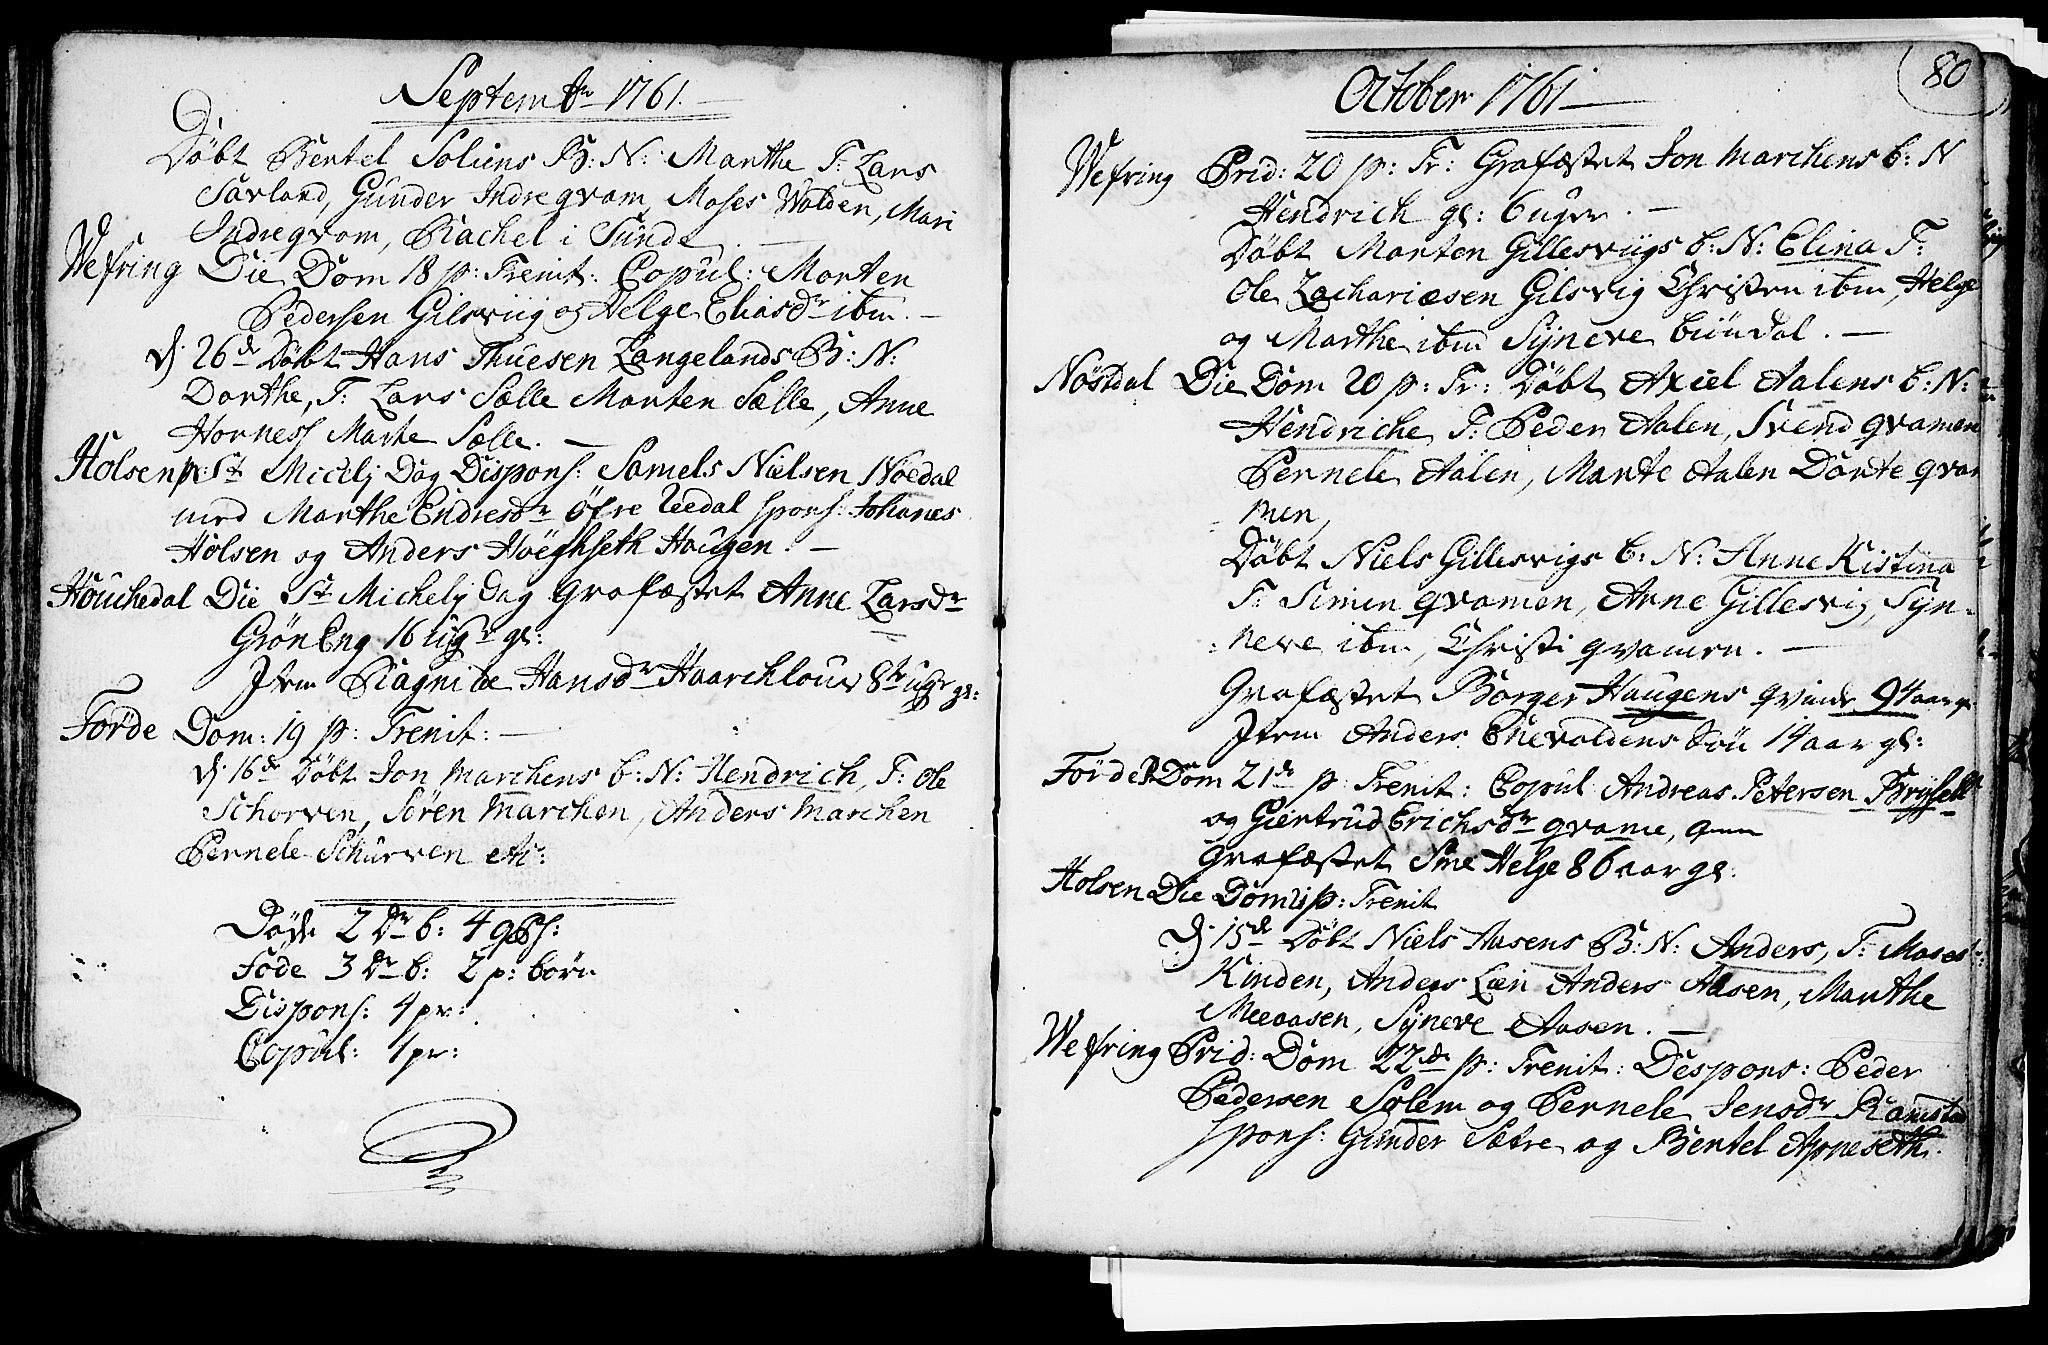 Septembr 1761.
Döbt Bentel Soliens B: N: Marthe F: Lars
Savland, Gunder Indreqvam, Moses Wolden, Mari
Indreqvam, Rachel i Sunde.
Wefring Die Dom 18 p: Trenit: Copul: Morten
Pedersen Gilsviig og Helge Eliasdr ibm.
d: 26de Döbt Hans Thuesen Langelands B: N:
Dorthe, F: Lars Sælle Marten Sælle, Anne
Hornes Marte Sælle.
Holsen p: St Michlj Dag Dispons: Samels Nielsen Noedal
med Marthe Endresdr Öfre spons: Johanes
Holsen og Anders Höeghseth Haugen.
Houchedal Die St Michelj Dag Grafæstet Anne Larsdr
GrönEng 16 ugr gl:
Item Ragnilæ Hansdr Haarchlou 8te ugr gl:
Förde Dom: 19 p: Trenit:
d: 16de Döbt Jon Marchens b: N: Hendrich, F: Ole
Schorven, Sören Marchen, Anders Marchen
Pernele Schurven etc:
Döde 2 Dr b: 4
Föde 3 Dr b: 2 p: börn
Dispons: 4 pr:
Copul: 1 pr:
80
October 1761
Wefring Prid: 20 p: Tr: Grafæstet Jon Marchens b: N
Hendrich gl: 6 ugr.
Döbt Marten Gillesviigs b: N: Elina F:
Ole Zachariæsen Gilsvig Christen ibm, Helge
og Marthe ibm Syneve
Nöstdal Die Dom 20 p: Tr: Döbt Axiel Aalens b: N:
Hendriche F: Peder Aalen, Svend qvamen
Pernele Aalen, Marte Aalen Dorte qva
men,
Döbt Niels Gillesvigs b: N: Anne Kistina
F: Simen qvamen, Anne Gillesvig, Syn-
neve ibm, Christi qvamen.
Grafæstet Borger Haugens qvinde 94 aar g:
Item Anders Enevoldens Sön 14 aar gl:
Förde Dom 21de p Trenit: Copul Andreas Petersen
og Giertrud Erichsdr qvame,
Grafæstet Sme Helge 86 aar gl:
Holsen Die Dom 21 p: Trenit
d: 15de Döbt Niels Aasens B: N: Anders, F: Moses
Kinden, Anders Læn Anders Aasen, Marthe
Meeaasen, Syneve Aasen.
Wefring Prid: Dom 22de p: Trenit: Despons: Peder
Pedersen Solem og Pernele Jensdr Ramsta
spons: Gunder Sætre og Bentel Apneseth.